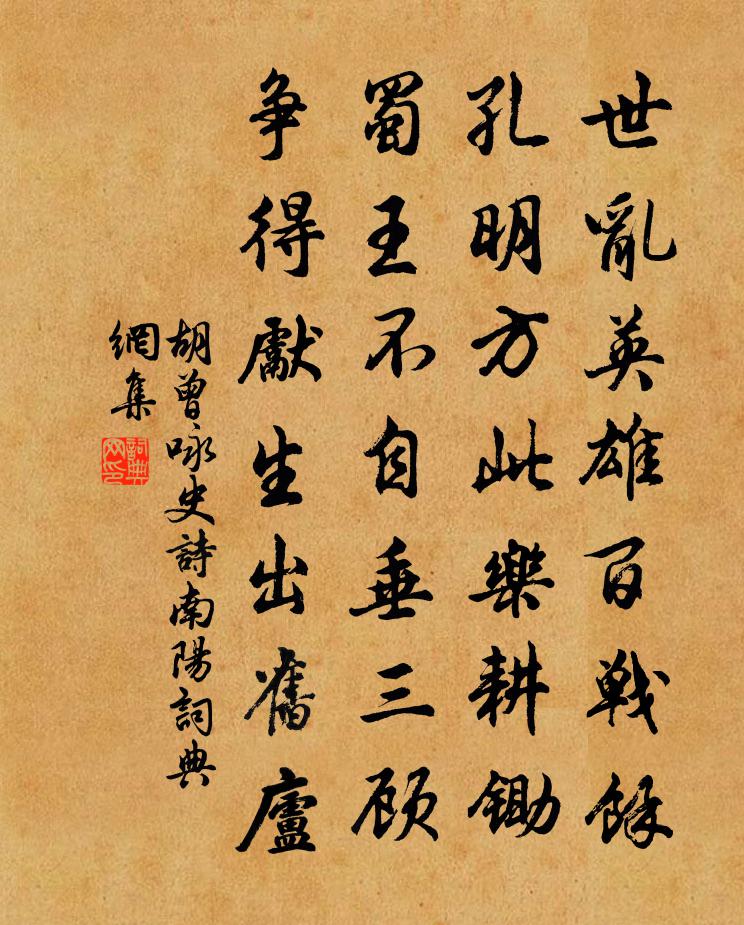 世亂英雄百戰餘
孔明方此樂耕鋤
蜀王不自垂三顾
争得獻生出舊廬
胡曾咏史詩南陽詞典
網集
詞典
网印